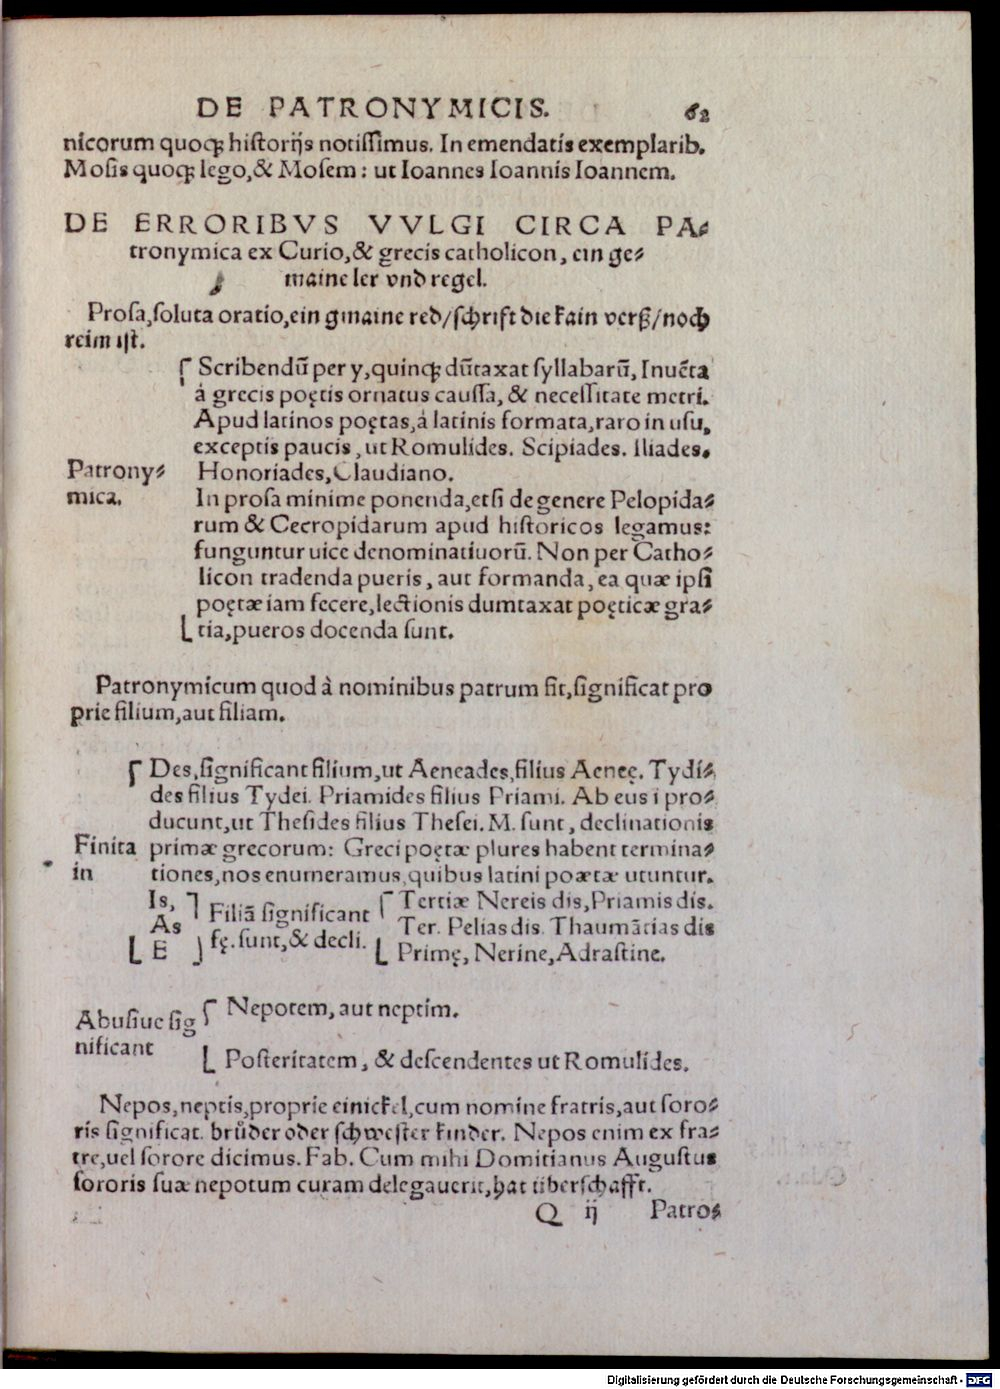 DE PATRONYMICIS. 62
nicorum quoqꝫ historijs notissimus. In emendatis exemplarib.
Mosis quoqꝫ lego,& Mosem: ut Ioannes Ioannis Ioannem.
DE ERRORIBVS VVLGI CIRCA PA⸗
tronymica ex Curio,& grecis catholicon, ein ge⸗
maine ler vnd regel.
Prosa,soluta oratio,ein gmaine red/schrift die kain verß/noch
reim ist.
Scribendū per y,quinqꝫ dūtaxat syllabarū, Inuēta
á grecis poętis ornatus caussa, & necessitate metri.
Apud latinos poętas,á latinis formata,raro in usu,
exceptis paucis, ut Romulides. Scipiades. Iliades.
Patrony⸗ Honoriades,Claudiano.
mica. In prosa minime ponenda,etsi de genere Pelopida⸗
rum & Cecropidarum apud historicos legamus:
funguntur uice denominatiuorū. Non per Catho⸗
licon tradenda pueris, aut formanda, ea quæ ipsi
poętæ iam fecere,lectionis dumtaxat poęticæ gra⸗
tia,pueros docenda sunt.
Patronymicum quod à nominibus patrum fit,significat pro
prie filium,aut filiam.
Des,significant filium,ut Aeneades,filius Aeneę. Tydi⸗
des filius Tydei. Priamides filius Priami. Ab eus i pro⸗
ducunt,ut Thesides filius Thesei. M. sunt, declinationis
Finita primæ grecorum: Greci poętæ plures habent termina⸗
in tiones,nos enumeramus,quibus latini poætæ utuntur.
Is, Filiā significant Tertiæ Nereis dis,Priamis dis.
As fę. sunt,& decli. Ter. Pelias dis. Thaumātias dis
E Primę, Nerine,Adrastine.
Abusiue sig Nepotem, aut neptim.
nificant Posteritatem, & descendentes ut Romulides.
Nepos,neptis,proprie einickel,cum nomine fratris,aut soro⸗
ris significat. brůder oder schwester kinder. Nepos enim ex fra⸗
tre,uel sorore dicimus. Fab. Cum mihi Domitianus Augustus
sororis suæ nepotum curam delegauerit,hat überschafft.
Q ij Patro⸗
Digitalisierung gefördert durch die Deutsche Forschungsgemeinschaft - DFG